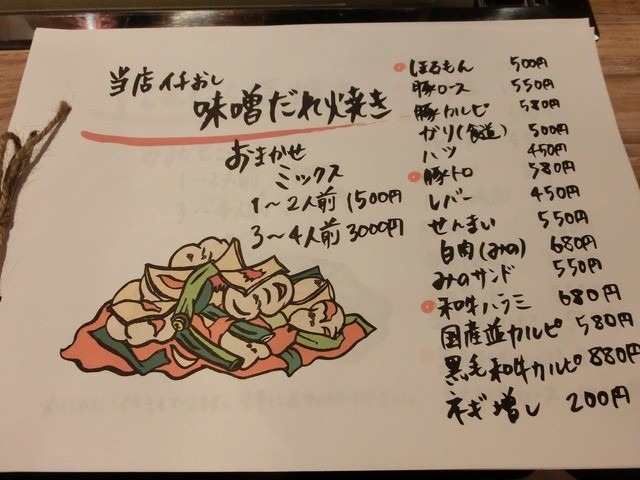 当店イチおし
味噌だれ焼き
おまかせ
ミックス
1〜2人前 1500円
3〜4人前 3000円
ほるもん 500円
豚ロース 550円
豚カルビ 580円
ガリ(食道) 500円
ハツ 450円
豚トロ 580円
レバー 450円
せんまい 550円
白肉(みの) 680円
みのサンド 550円
和牛ハラミ 680円
国産並カルビ 580円
黒毛和牛カルビ 880円
ネギ増し 200円